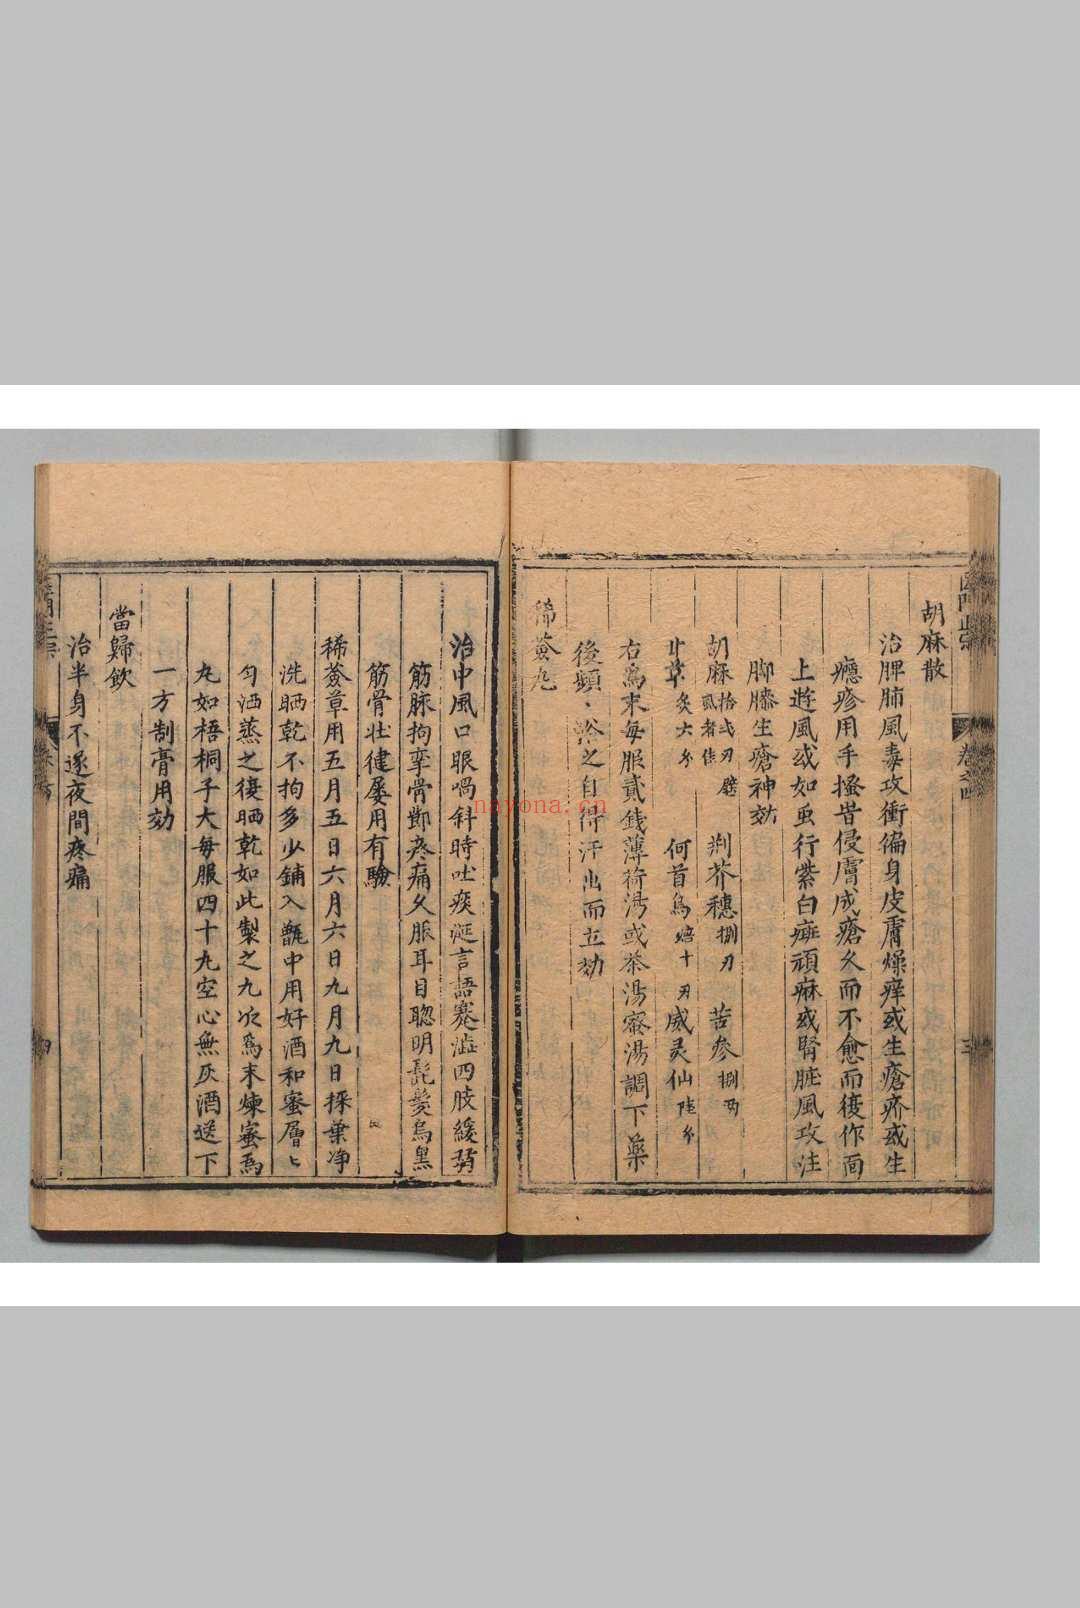 胡麻散
治脾肺風毒攻衝徧身皮膚燥痒或生瘡疥或生
癮疹用手搔昔侵膚成瘡久而不愈而復作面
上遊風或如虫行紫白癍頑麻或腎臟風攻注
脚膝生瘡神効
胡麻 拾弍刄 貳者佳 荆芥穗 捌刄 苦参 捌两
甘草 炙六分 何首烏 焙十刄 威灵仙 陸分
右爲末每服貳錢薄荷湯或茶湯蜜湯調下藥
後頻浴之自得汗出而立効
豨薟丸
治中風口眼喎斜時吐痰涎言語蹇澁四肢緩
筋脉拘孪骨節疼痛久服耳目聰明髭髮烏黑
筋骨壮健屡用有驗
豨薟草用五月五日六月六日九月九日採葉净
洗晒乾不拘多少鋪入甑中用好酒和蜜層々
匀洒蒸之復晒乾如此製之九次爲末煉蜜爲
丸如梧桐子大每服四十九空心無灰酒送下
一方制膏用効
當歸飲
治半身不遂夜間疼痛
nayona.cn